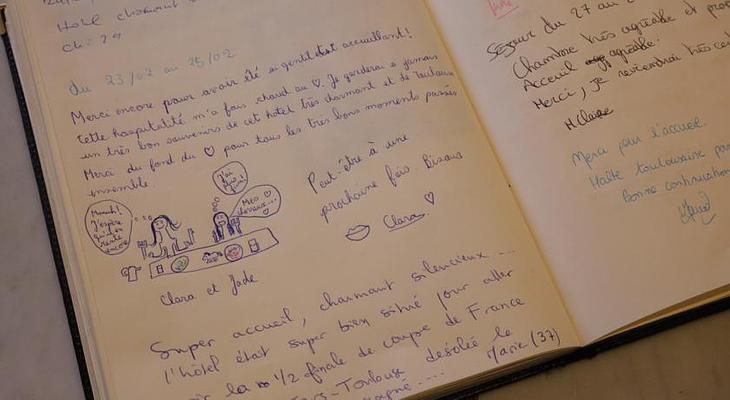 Hotel charmant
Ch: 29
du 23/02 au 25/02
Merci encore pour avoir été si gentil et accueillant!
Cette hospitalité m'a fais chaud au ♡. Je garderai à jamais
un très bon souvenirs de cet hotel très charmant et de Toulouse
Merci du fond du ♡ pour tous les très bons moments passés
ensemble.
J'ai
plus
faim!
Miam!
J'espère
qu'il en
reste
encore
Mes ♡
dessous... ♡
Clara et Jade
Peut-être à une
prochaine fois. Bisous
♡
Clara.
Super accueil, charmant silencieux ...
l'hôtel était super bien situé pour aller
voir la 1/2 finale de coupe de France
-Toulouse désolée, la
gagné....
Marie (37)
Séjour du 27 au 2
Chambre très agréable et pro
Accueil agréable.
Merci, je reviendrai très cer
M Claire
Merci pour l'accueil.
Halte toulousaine par
Bonne continuation